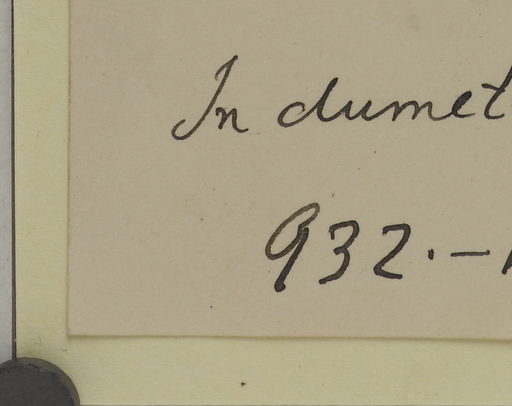 In dumet
932.-